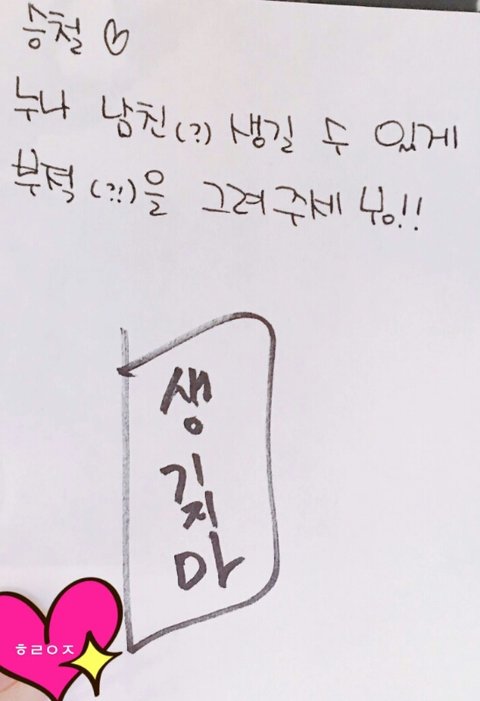 승철 ♡
누나 남친(?) 생길 수 있게
부적(?!)을 그려주세용!!
생
기
지
마
ㅎㄹㅇㅈ